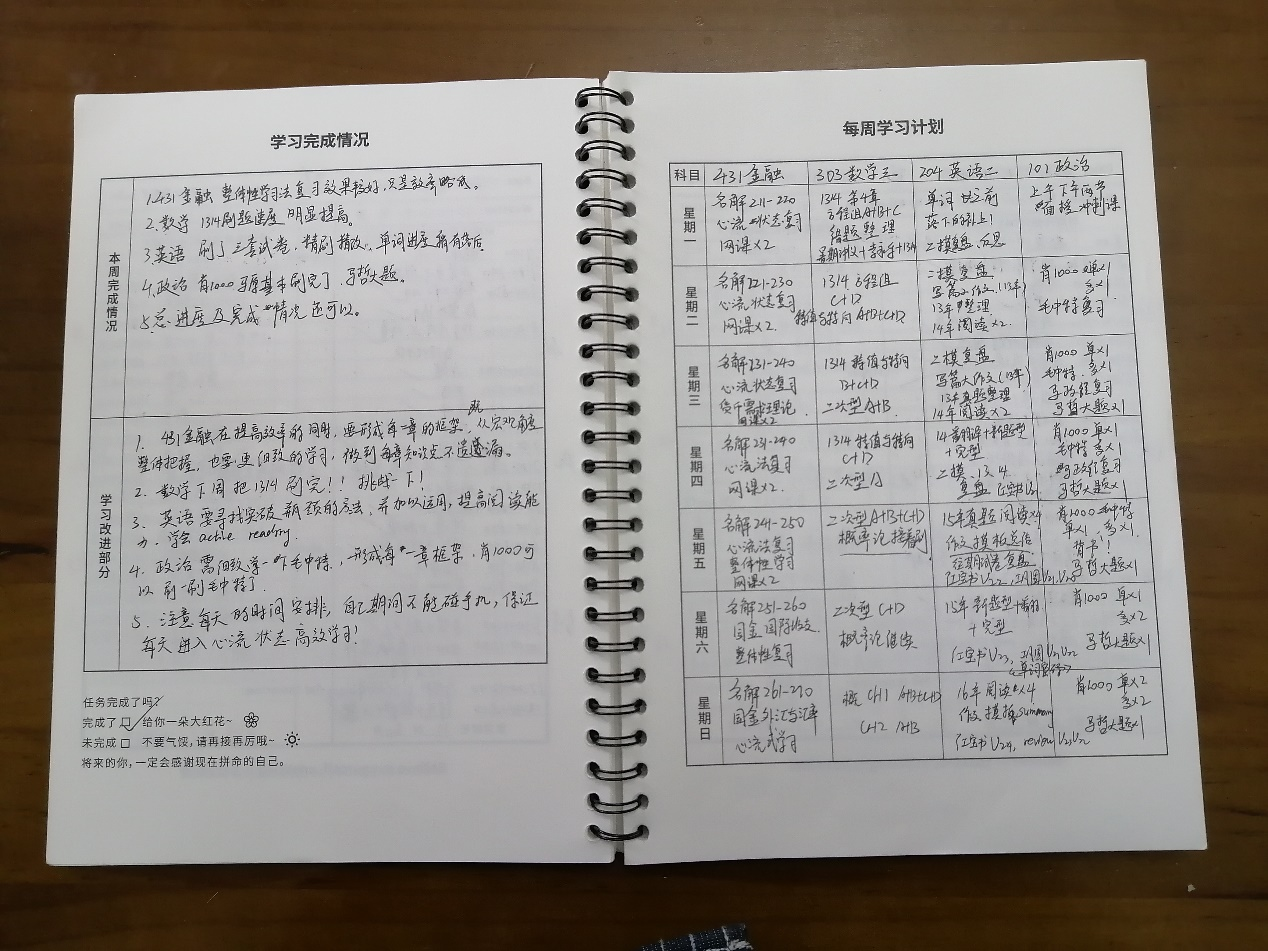 学习完成情况
本周完成情况
1.431金融 整体性学习法复习效果较好,只是效率略低。
2.数学 1314刷题进度 明显提高。
3.英语 刷了三套试卷,精刷精改,单词进度稍有落后
4.政治 肖1000马原基本刷完了,马哲大题。
5.总进度及完成情况还可以。
学习改进部分
1. 431金融在提高效率的同时,要形成每一章的框架,从宏观角度
整体把握,也要更细致的学习,做到每章知识点不遗漏。
2. 数学下周把1314刷完!! 挑战一下!
3. 英语要寻找突破瓶颈的方法,并加以运用,提高阅读能
力,学会 active reading.
4. 政治 需细致学一下毛中特,形成每一章框架,肖1000可
以刷一刷毛中特了
5. 注意每天的时间安排,自己期间不能碰手机,保证
每天进入心流状态高效学习!
任务完成了吗?
完成了 给你一朵大红花~
未完成 不要气馁,请再接再厉哦~
将来的你,一定会感谢现在拼命的自己。
每周学习计划
科目 431金融 303数学三 204英语二 101政治
星期一
名解211-220
心流状态复习
网课×2
1314 第4章
方程组A+B+C
错题整理
单词 以之前
落下的补上!
二模复盘 反思
上午下午两节
直播 冲刺课
星期二
名解221-230
心流状态复习
网课×2
1314方程组
C+D
特值与特向 A+B+C+D
二模复盘
写篇小作文(13年)
13年整理
14年阅读×2
肖1000 单×1
多×1
毛中特复习
星期三
名解231-240
心流状态复习
货币需求理论
网课×2
1314 特值与特向
B+C+D
二次型A+B
二模复盘
写篇大作文(13年)
13年真题整理
14年阅读×2
肖1000 单×1
毛中特 多×1
马政经复习
马哲大题×1
星期四
名解231-240
心流法复习
网课×2
1314 特值与特向
C+D
二次型A
14年翻译+新题型
+完型
二模、13、14
复盘
肖1000单×1
毛中特 多×1
马政经复习
马哲大题×1
星期五
名解241-250
心流法复习
整体性学习
网课×2
二次型A+B+C+D
概率论接着刷
15年真题阅读×4
作文模板总结
往期试卷复盘
红宝书U22,巩固U21,U20
肖1000毛中特
单×1 多×1
背书!
马哲大题×1
星期六
名解251-260
国金 国际收支
整体性复习
二次型 C+D
概率论继续
15年新题型+翻译
+完型
红宝书U23,巩固U21U22
肖1000 单×1
多×2
马哲大题×1
星期日
名解261-270
国金外汇与汇率
心流式学习
概 CH1 A+B+C+D
CH2 A+B
16年阅读×4
作文模板summary
红宝书U24, review U21U22
肖1000 单×2
多×2
马哲大题×1